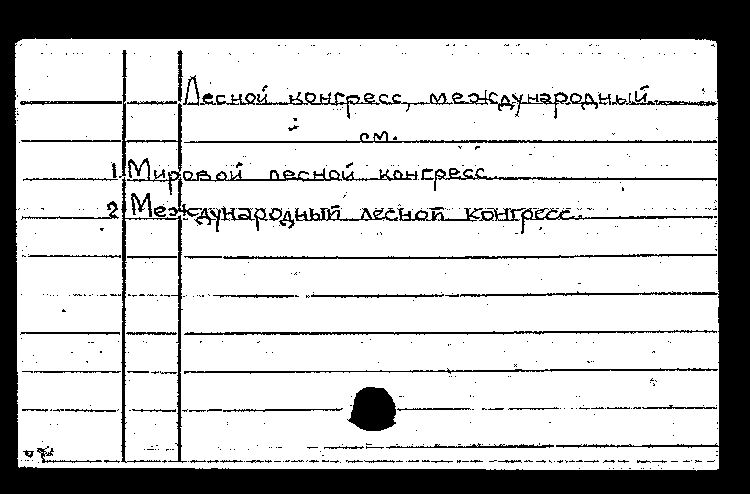 Лесной конгресс, международный
см.
1. Мировой лесной конгресс.
2. Международный лесной конгресс.